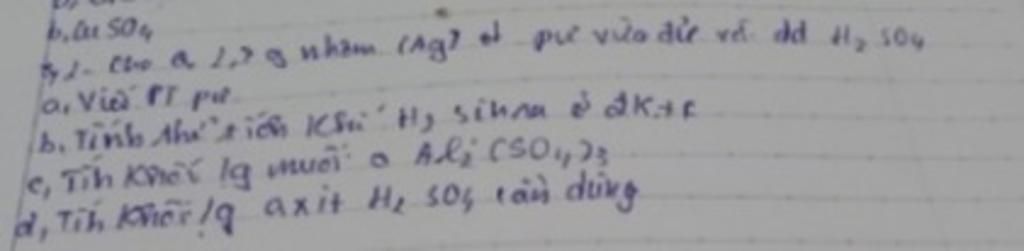 b, CuSO4
Cho 2,7 g nhôm (Ag) pư vừa đủ với dd H2 SO4
a, Viết PT pư
b. Tính thử tích khí H2 sinh ra ở đktc
c, Tíh khối lg muối Al2 (SO4)3
d, Tíh khối lg axit H2 SO4 cần dùng